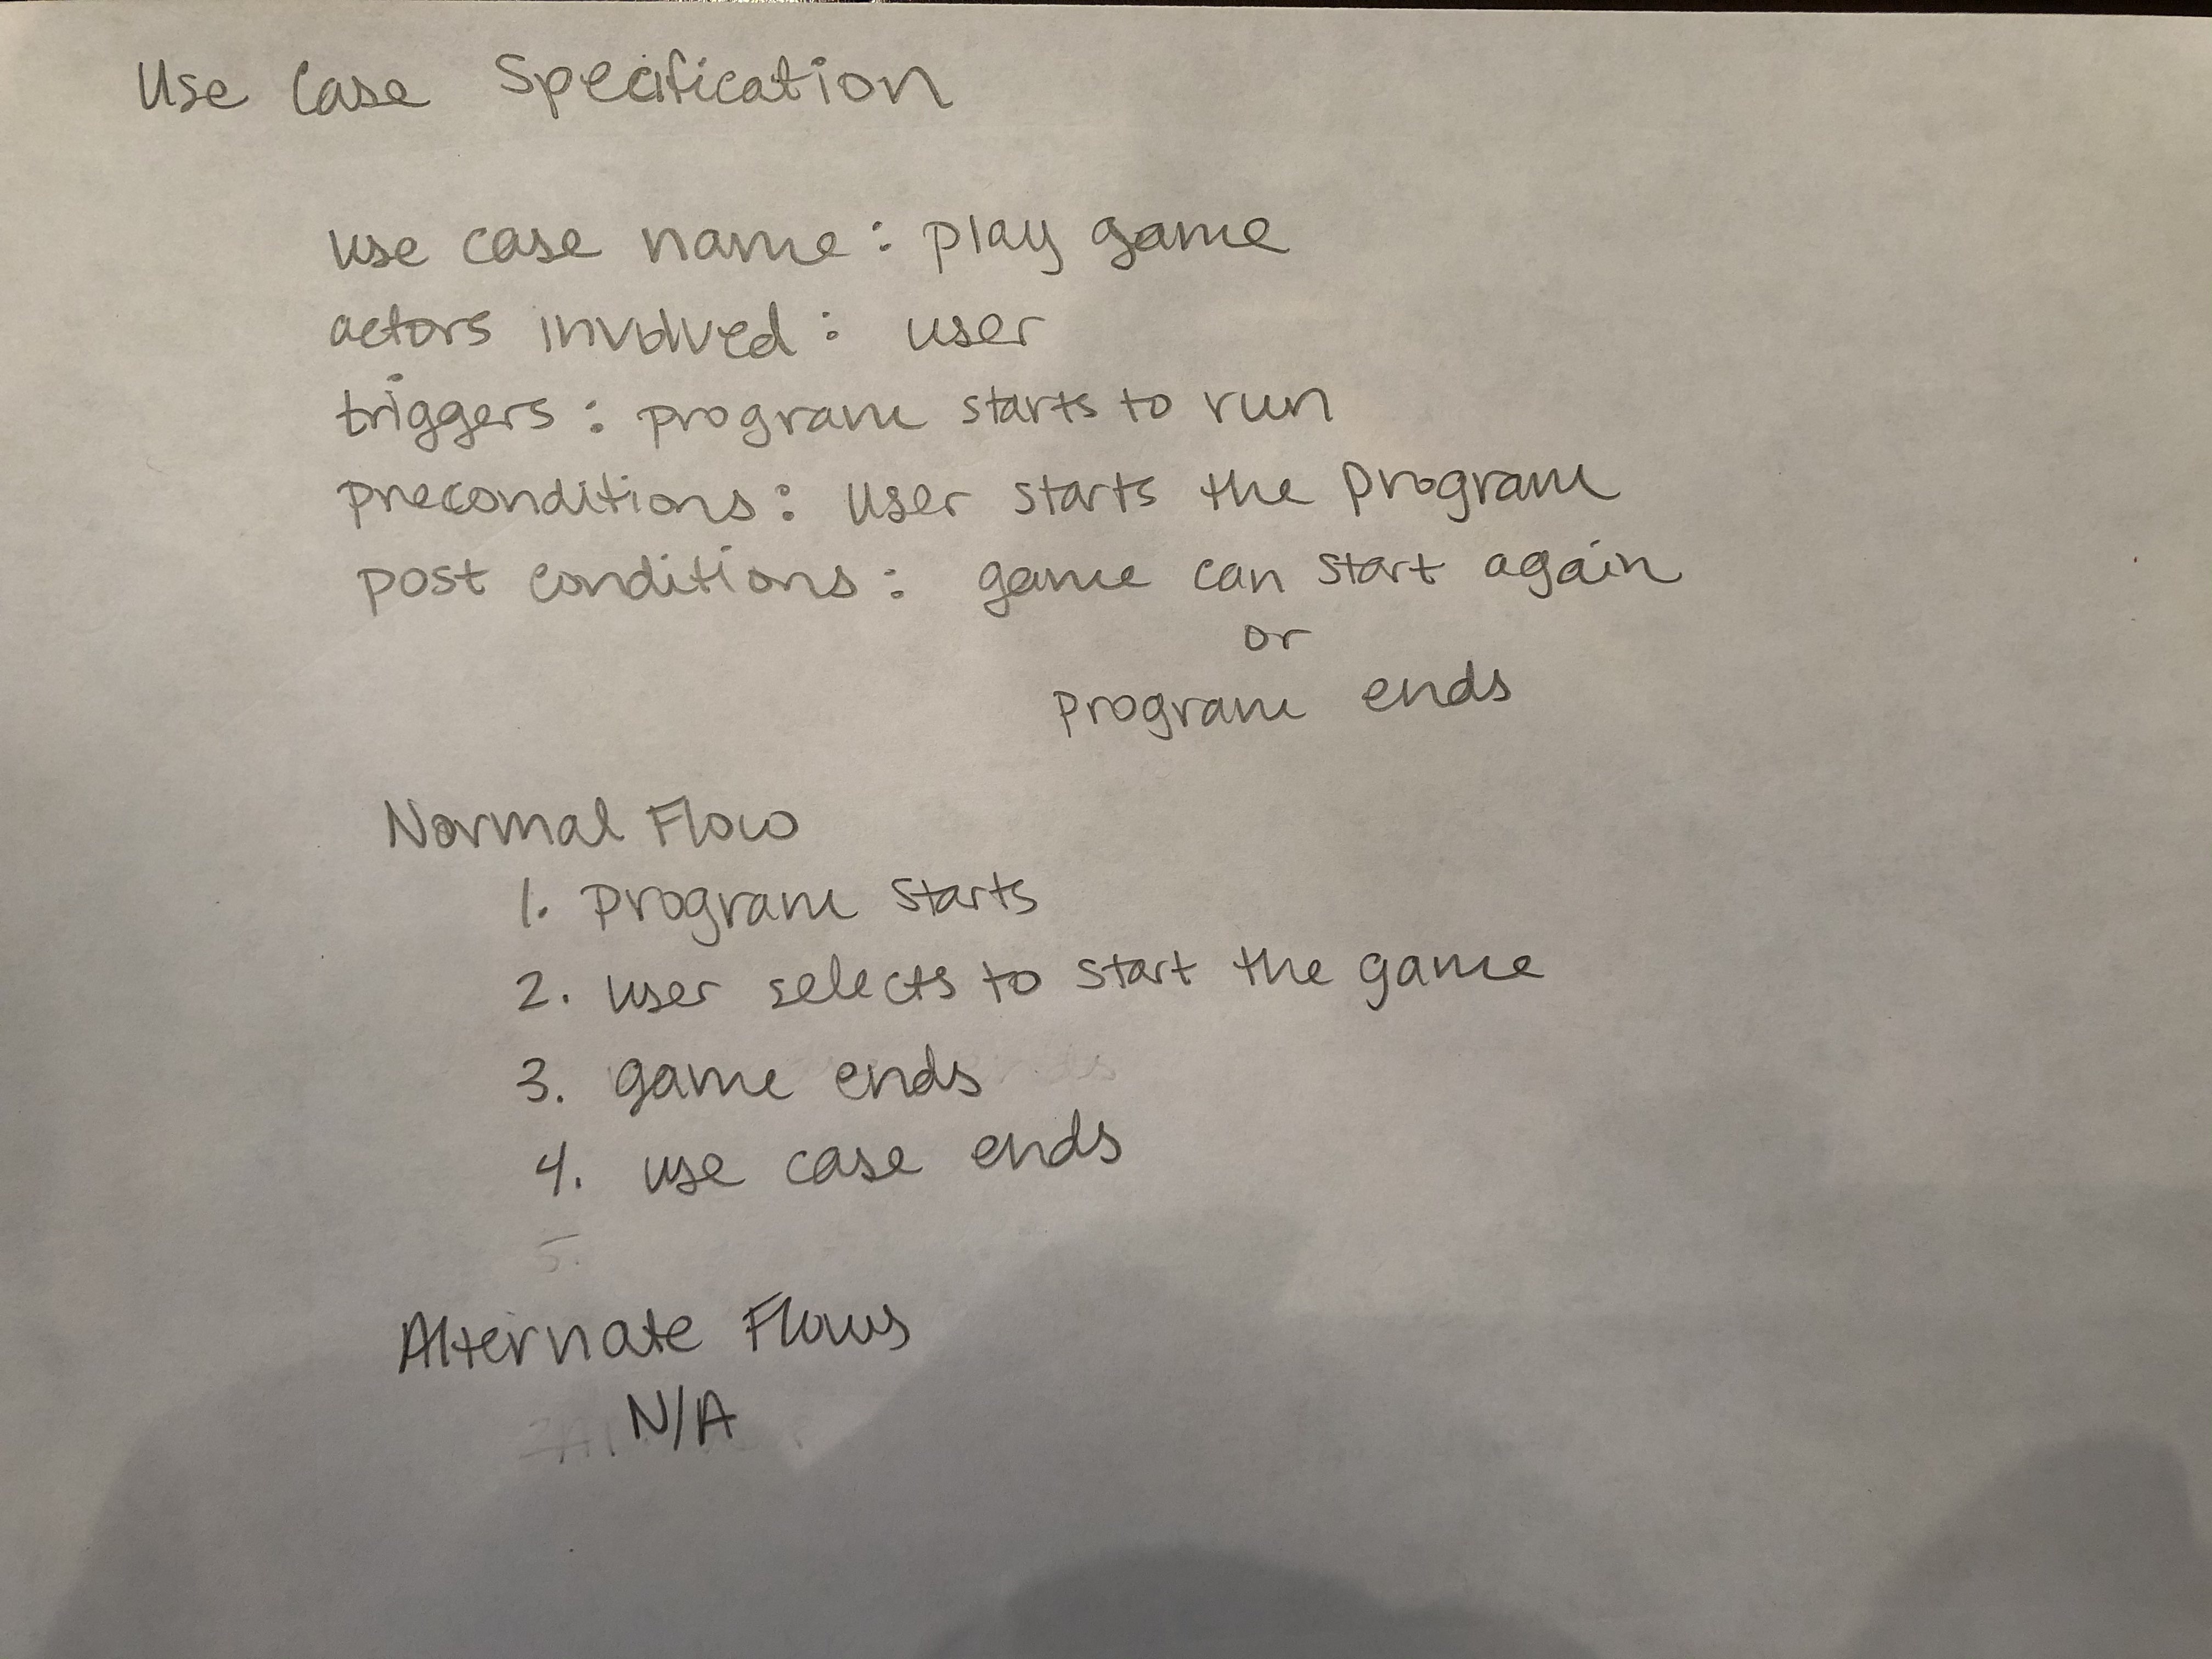 Use Case Specification
use case name: play game
actors involved: user
triggers: program starts to run
preconditions: user starts the program
post conditions: game can start again
or
program ends
Normal Flow
1. program starts
2. user selects to start the game
3. game ends
4. use case ends
5.
Alternate Flows
N/A